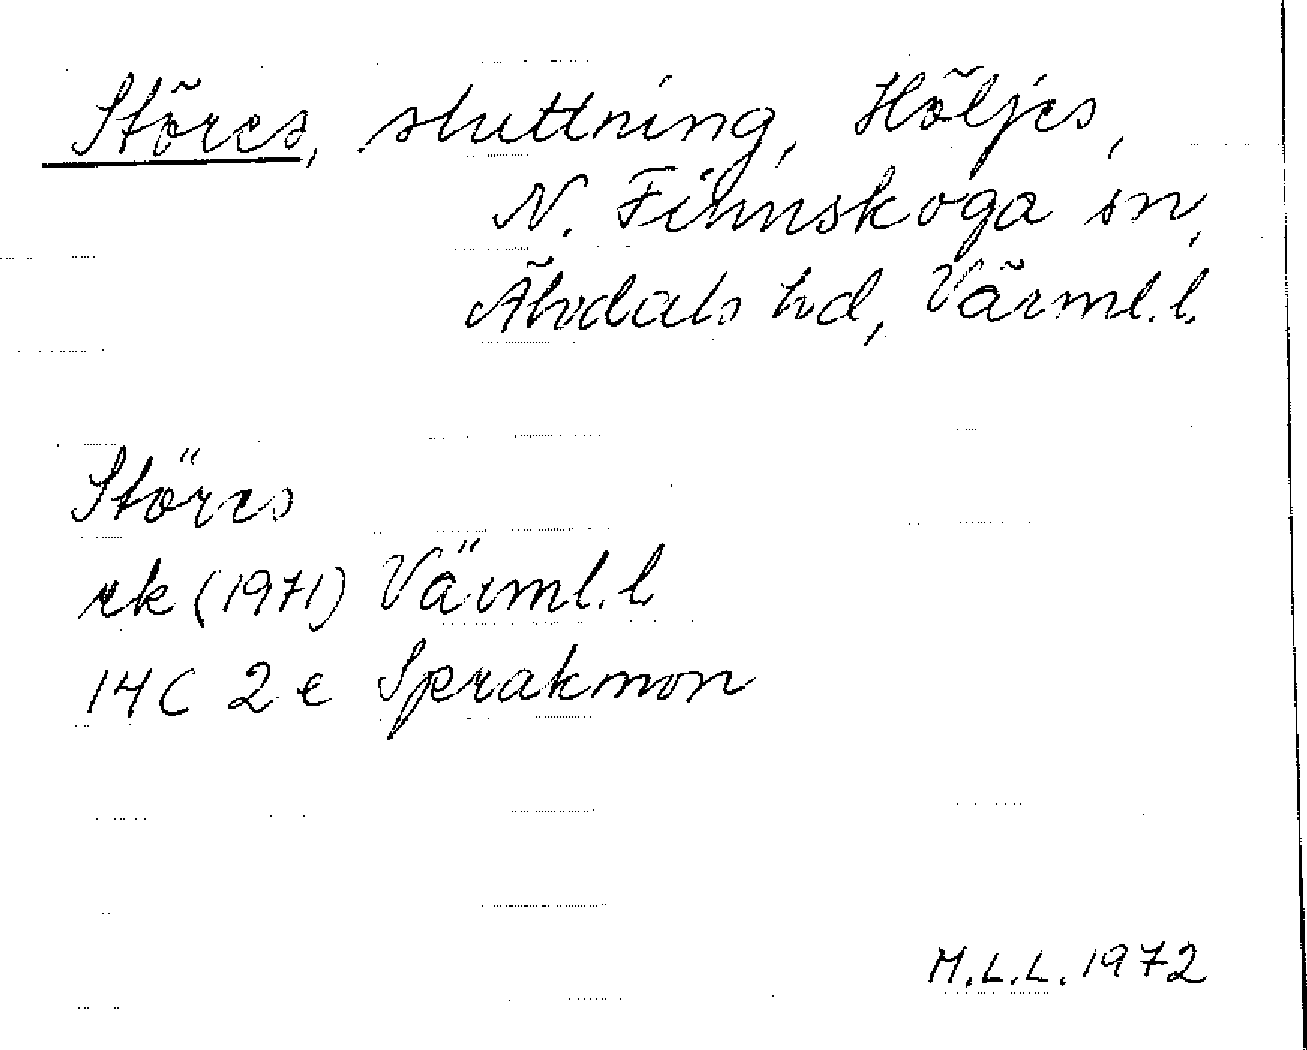 Störes, sluttning, Höljes,
N. Finnskoga sn,
Älvdals hd, Värml. l.
Störes
rk (1971) Värml. l.
14C 2e Sprakmon
M.L.L. 1972